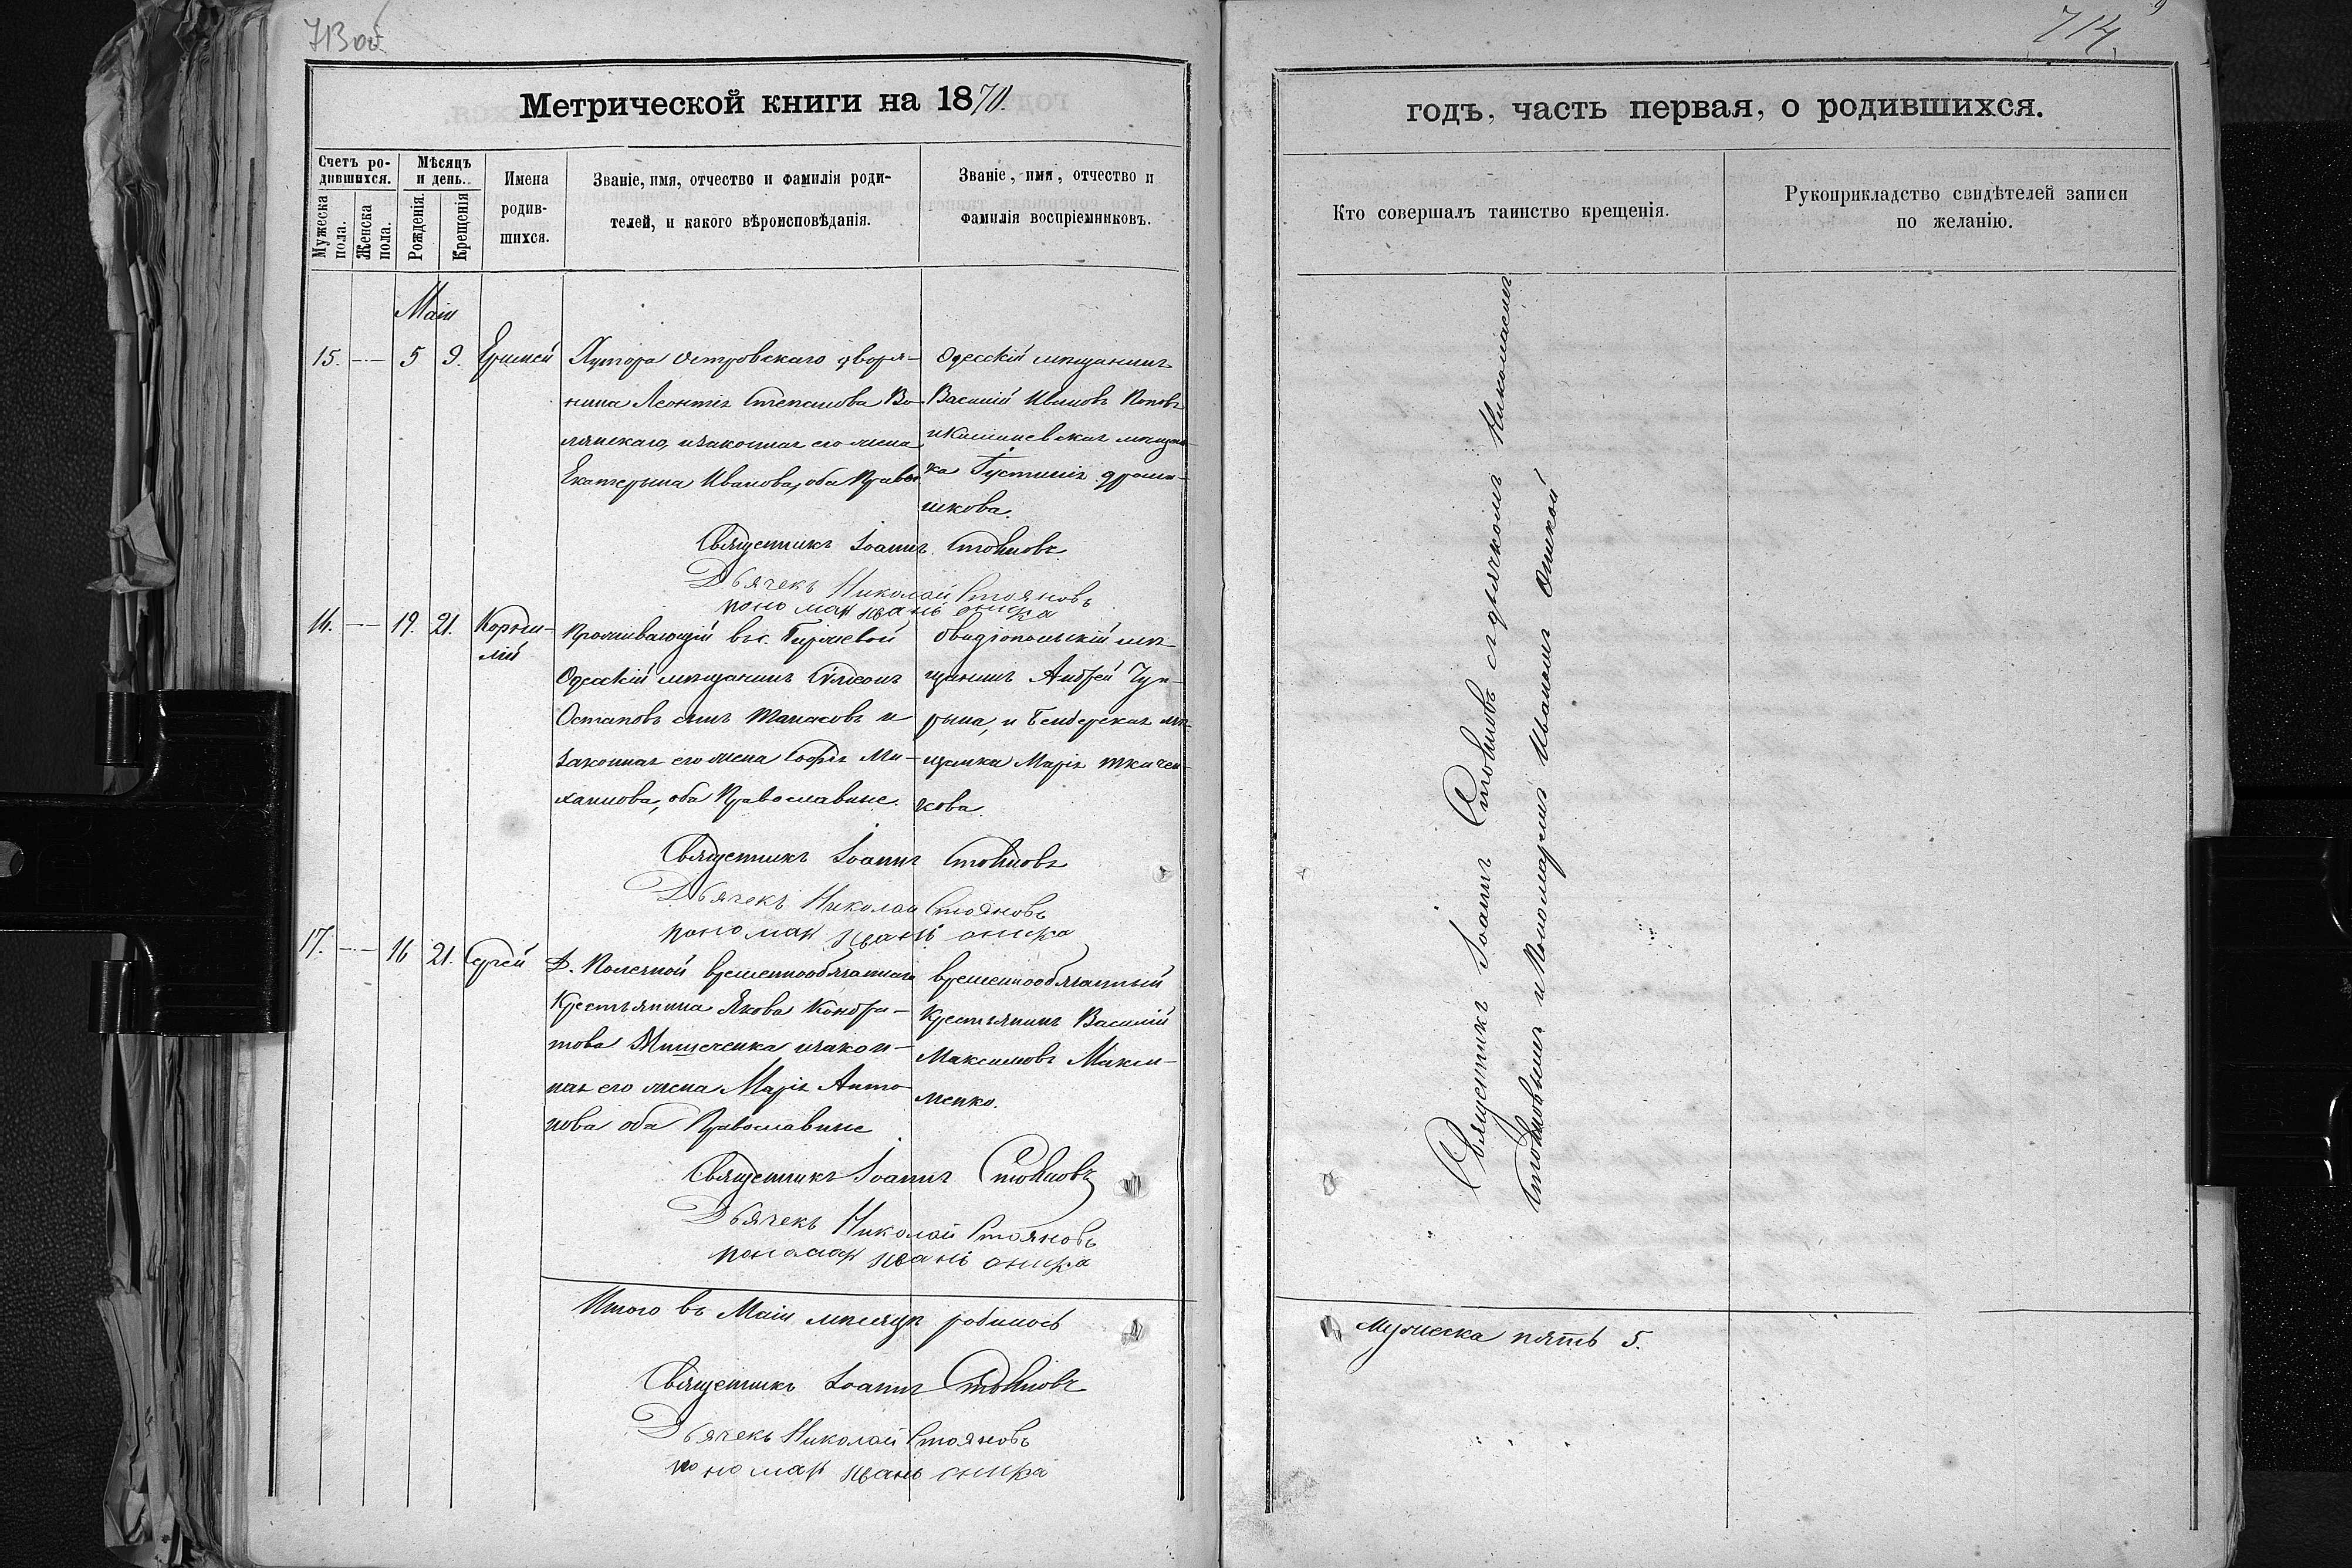 713 об
Метрической книги на 1870.
Счетъ ро-
дившихся.
Мужеска
пола.
Женска
пола.
Мѣсяцъ
и день.
Рожденія.
Крещенія
Имена
родив-
шихся.
Званіе, имя, отчество и фамилія роди-
телей, и какого вѣроисповѣданія.
Званіе, имя, отчество и
фамилія воспріемниковъ.
Маіи
15. 5 9. Еримей
Хутора Островскаго дворя-
нина Леонтія Степанова Во-
и законная его жена
Екатерина Иванова, оба Правос.
Одесскій мѣщанинъ
Василій Ивановъ Поповъ
и Кишиневская мѣщан-
ка Іустинія
шкова.
Священникъ Іоаннъ Стояновъ
Дьячекъ Николай Стояновъ
пономар Иванъ Оника
16. 19. 21. Корни-
лій
Проживающій въ с. Гиржевой
Одесскій мѣщанинъ Сѵмеонъ
Остаповъ сынъ Танасовъ и
законная его жена Софія Ми-
хаилова, оба Православные.
Овидіопольскій мѣ-
щанинъ Андрей Чуп-
рына, и Бендерская мѣ-
щанка Марія Ткачен-
кова.
Священникъ Іоаннъ Стояновъ
Дьячекъ Николай Стояновъ
пономар Иванъ Оника
17. 16 21. Сергей
Д. Полезной временнообязаннаго
Крестьянина Якова Кондра-
това Мищеченка и закон-
ная его жена Марія Анто-
нова оба Православные
временнообязанный
Крестьянинъ Василій
Максимовъ Макси-
менко.
Священникъ Іоаннъ Стояновъ
Дьячекъ Николай Стояновъ
пономар Иванъ Оника
Итого въ Маіи мѣсяцѣ родилось
Священникъ Іоаннъ Стояновъ
Дьячекъ Николай Стояновъ
пономар Иванъ Оника
714
годъ, часть первая, о родившихся.
Кто совершалъ таинство крещенія.
Рукоприкладство свидѣтелей записи
по желанію.
Священникъ Іоаннъ Стояновъ съ дьячкомъ Николаемъ
Стояновымъ и Пономаремъ Иваномъ Оникой
мужеска пять 5.